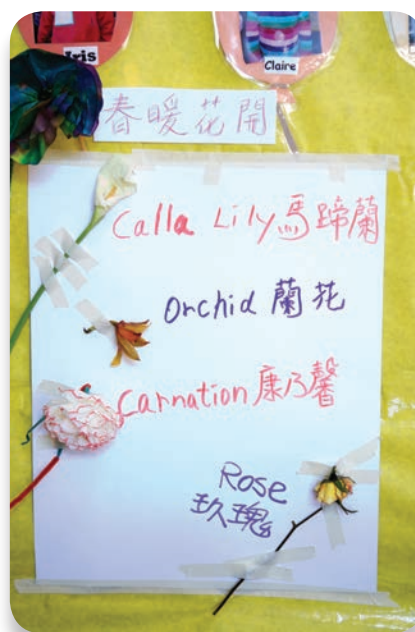 Iris
Claire
春暖花開
Calla Lily馬蹄蘭
Orchid 蘭花
Carnation 康乃馨
Rose
玫瑰